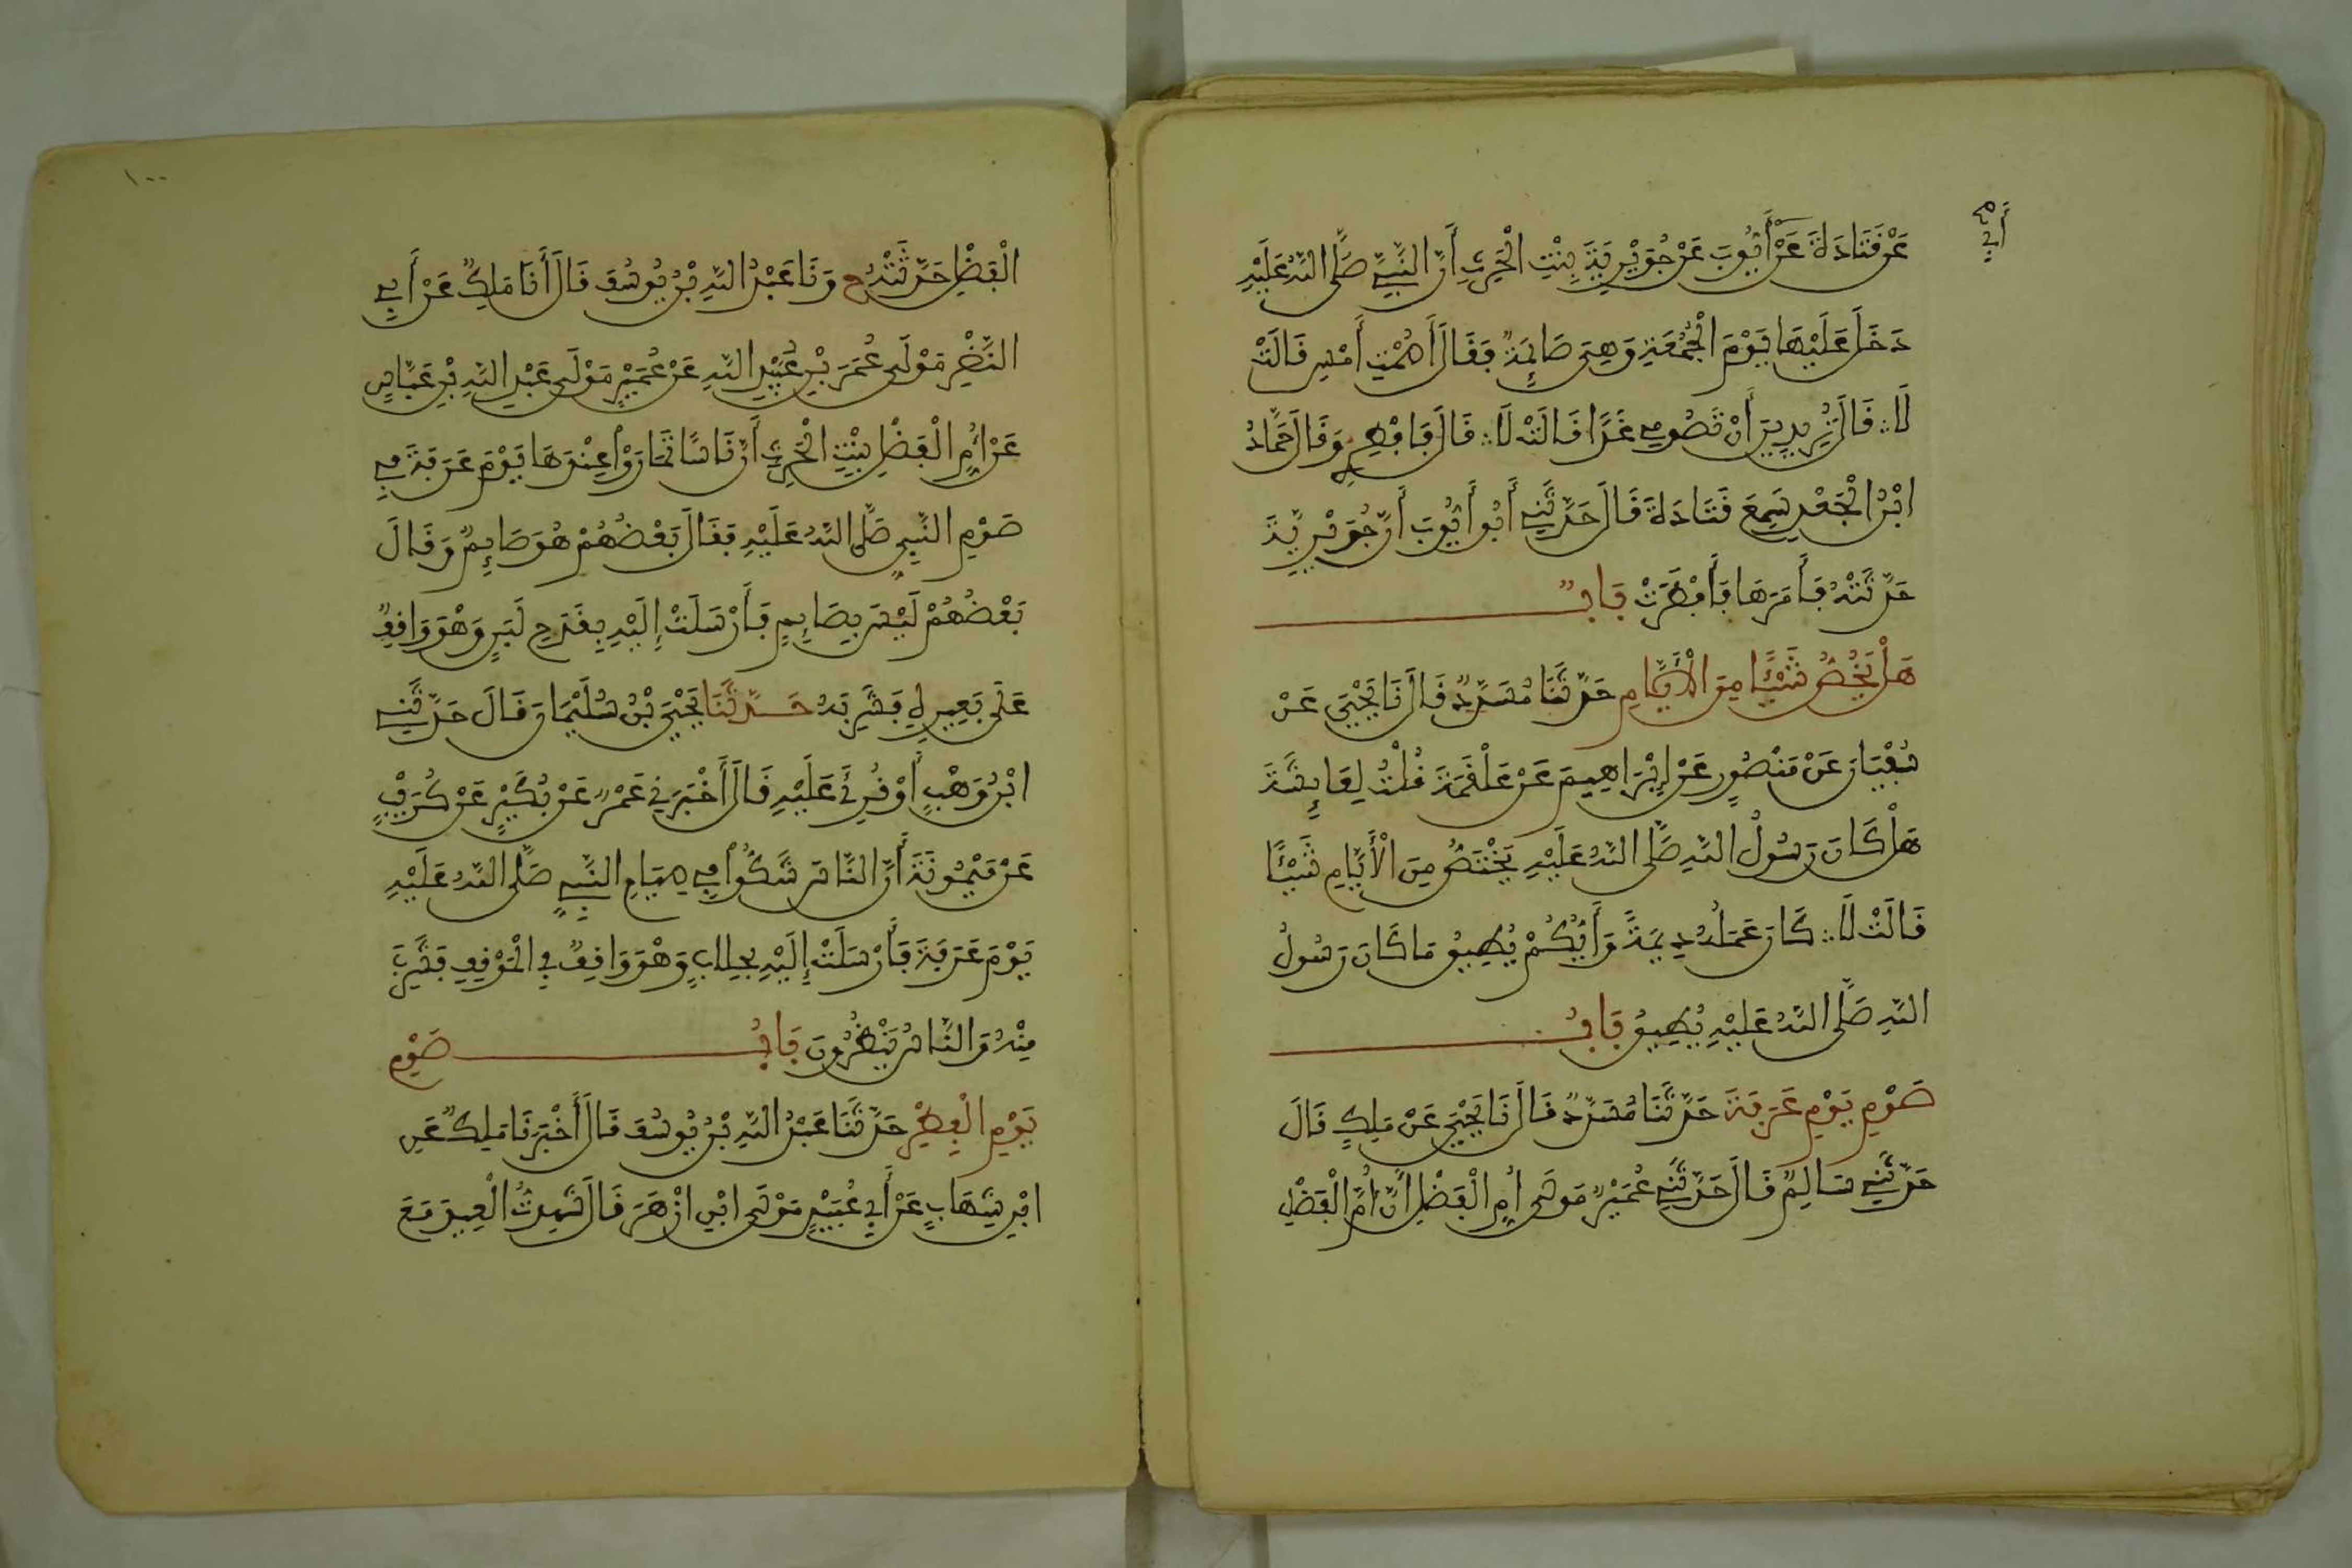 أبي صح
عَنْ قَتَادَةَ عَنْ أَيُّوبَ عَنْ جُوَيْرِيَةَ بِنْتِ الْحَرِثِ أَنَّ النَّبِيَّ صَلَّى اللهُ عَلَيْهِ
دَخَلَ عَلَيْهَا يَوْمَ الْجُمُعَةِ وَهِيَ صَايِمَةٌ فَقَالَ أَصُمْتِ أَمْسِ قَالَتْ
لَا ∴ قَالَ تُرِيدِينَ أَنْ تَصُومِي غَدًا قَالَتْ لَا ∴ قَالَ فَافْطِرِي وَقَالَ حَمَّادُ
ابْنُ الْجَعْدِ سَمِعَ قَتَادَةَ قَالَ حَدَّثَنِي أَبُو أَيُّوبَ أَنَّ جُوَيْرِيَةَ
حَدَّثَتْهُ فَأَمَرَهَا فَأَفْطَرَتْ بَابٌ
هَلْ يَخُصُّ شَيْئًا مِنَ الْأَيَّامِ حَدَّثَنَا مُسَدَّدٌ قَالَ نَا يَحْيَى عَنْ
سُفْيَانَ عَنْ مَنْصُورٍ عَنْ إِبْرَاهِيمَ عَنْ عَلْقَمَةَ قُلْتُ لِعَايِشَةَ
هَلْ كَانَ رَسُولُ اللهِ صَلَّى اللهُ عَلَيْهِ يَخْتَصُّ مِنَ الْأَيَّامِ شَيْئًا
قَالَتْ لَا ∴ كَانَ عَمَلُهُ دِيمَةً وَأَيُّكُمْ يُطِيقُ مَا كَانَ رَسُولُ
اللهِ صَلَّى اللهُ عَلَيْهِ يُطِيقُ بَابُ
صَوْمِ يَوْمِ عَرَفَةَ حَدَّثَنَا مُسَدَّدٌ قَالَ نَا يَحْيَى عَنْ مَلِكٍ قَالَ
حَدَّثَنِي سَالِمٌ قَالَ حَدَّثَنِي عُمَيْرٌ مَوْلَى أُمِّ الْفَضْلِ أَنَّ أُمَّ الْفَضْلِ
١٠٠
الْفَضْلِ حَدَّثَتْهُ ح وَنَا عَبْدُ اللهِ بْنُ يُوسُفَ قَالَ أَنَا مَلِكٌ عَنْ أَبِي
النَّضْرِ مَوْلَى عُمَرَ بْنِ عُبَيْدِ اللهِ عَنْ عُمَيْرٍ مَوْلَى عَبْدِ اللهِ بْنِ عَبَّاسٍ
عَنْ أُمِّ الْفَضْلِ بِنْتِ الْحَرِثِ أَنَّ نَاسًا تَمَارَوْا عِنْدَهَا يَوْمَ عَرَفَةَ فِي
صَوْمِ النَّبِيِّ صَلَّى اللهُ عَلَيْهِ فَقَالَ بَعْضُهُمْ هُوَ صَايِمٌ وَقَالَ
بَعْضُهُمْ لَيْسَ بِصَايِمٍ فَأَرْسَلَتْ إِلَيْهِ بِقَدَحِ لَبَنٍ وَهْوَ وَاقِفٌ
عَلَى بَعِيرِهِ فَشَرِبَهُ حَدَّثَنَا يَحْيَى بْنُ سُلَيْمَانَ قَالَ حَدَّثَنِي
ابْنُ وَهْبٍ أَوْ قُرِئَ عَلَيْهِ قَالَ أَخْبَرَنِي عَمْرٌو عَنْ بُكَيْرٍ عَنْ كُرَيْبٍ
عَنْ مَيْمُونَةَ أَنَّ النَّاسَ شَكُّوا فِي صِيَامِ النَّبِيِّ صَلَّى اللهُ عَلَيْهِ
يَوْمَ عَرَفَةَ فَأَرْسَلَتْ إِلَيْهِ بِحِلَابٍ وَهْوَ وَاقِفٌ فِي الْمَوْقِفِ فَشَرِبَ
مِنْهُ وَالنَّاسُ يَنْظُرُونَ بَابُ صَوْمِ
يَوْمِ الْفِطْرِ حَدَّثَنَا عَبْدُ اللهِ بْنُ يُوسُفَ قَالَ أَخْبَرَنَا مَلِكٌ عَنِ
ابْنِ شِهَابٍ عَنْ أَبِي عُبَيْدٍ مَوْلَى ابْنِ أَزْهَرَ قَالَ شَهِدتُّ الْعِيدَ مَعَ